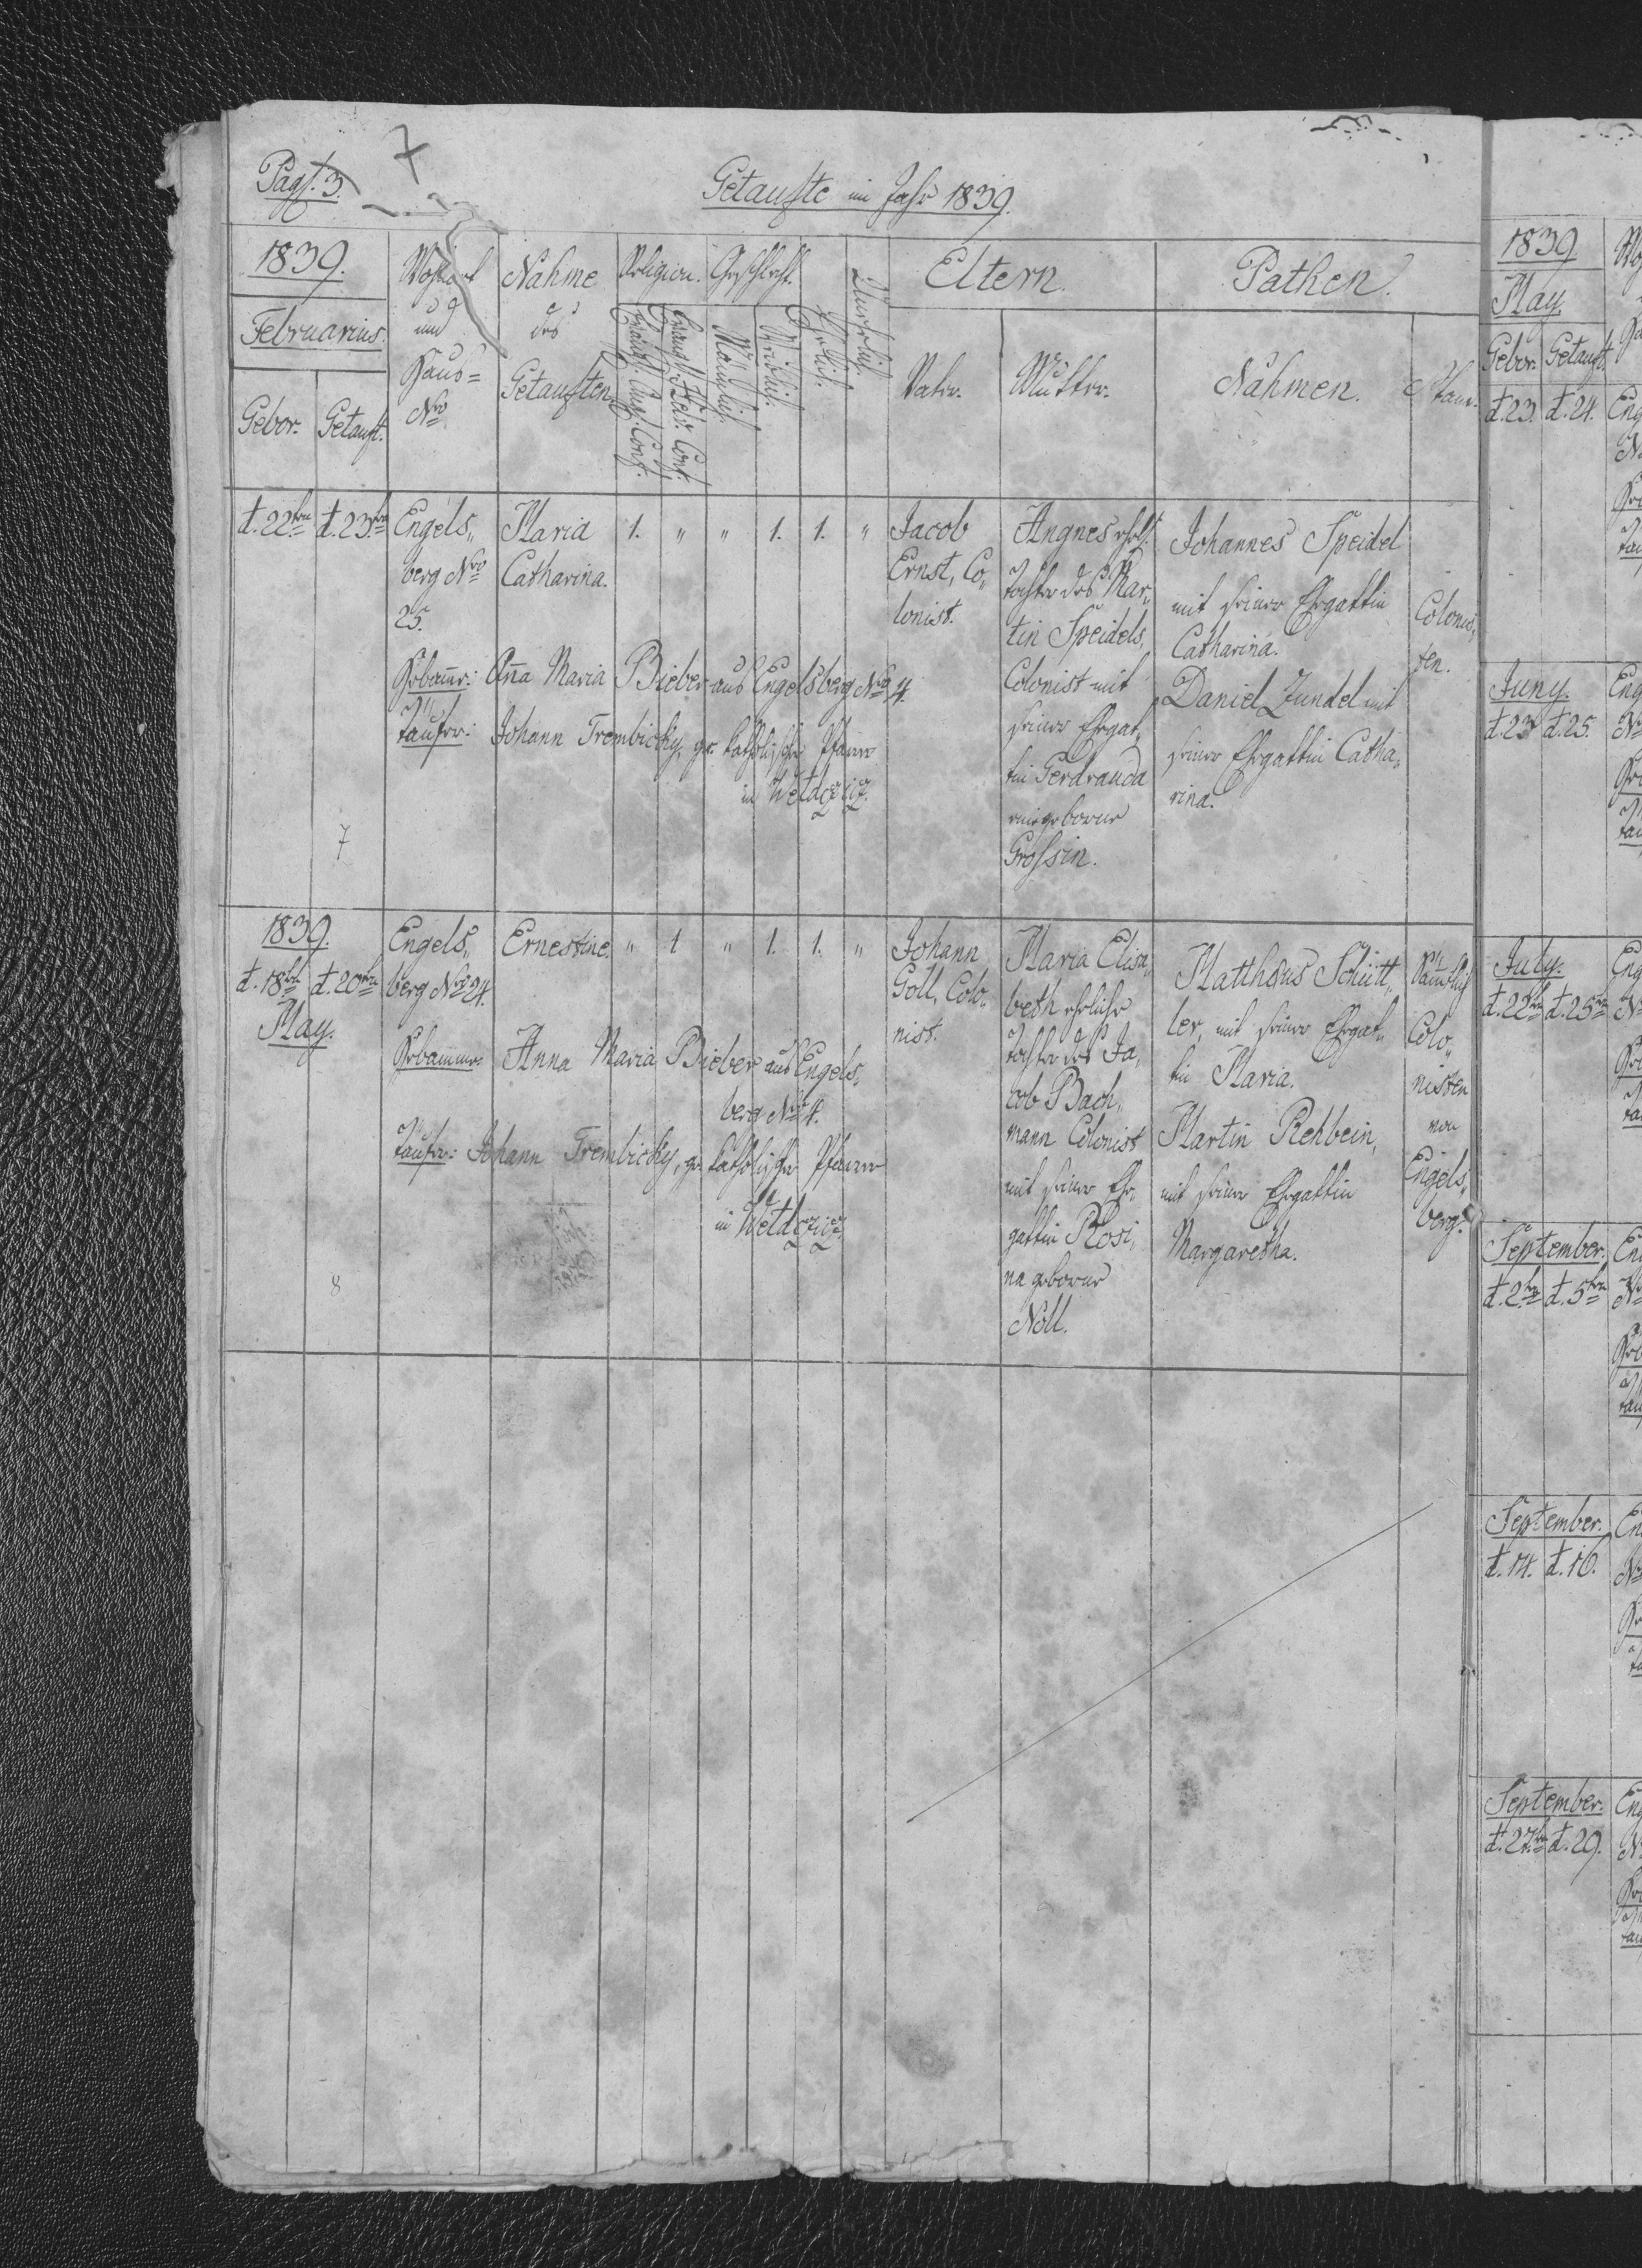 Pagf. 3.
7
Getaufte im Jahr 1839.
1839.
Februarius.
Gebor. Getauft.
Wohnort
und
Haus=
Nro
Nahme
des
Getauften
Religion.
Evangl. Aug. Conf.
Evangl. Helv. Conf.
Geschlecht.
Männlich.
Weiblich.
Ehelich.
Unehelich.
Eltern.
Vater.
Mutter.
Pathen.
Nahmen.
Stand.
d. 22ten d. 23ten
Engels„
berg Nro
25.
Maria
Catharina.
1. „ „ 1. 1. „
Jacob
Ernst, Co„
lonist.
Angnes ehel.
Tochter des Mar„
tin Speidels,
Colonist mit
seiner Ehegat„
tin Gerdrauda
eine geborne
Grossin.
Johannes Speidel
mit seiner Ehegattin
Catharina.
Daniel Zundel mit
seiner Ehegattin Catha„
rina.
Colonis„
ten.
Hebamr: Ana Maria Bieber aus Engelsberg Nro 4.
Taufer: Johann Trembicky, gr. katholischer Pfarrer
in Weldzicz.
7
1839.
d. 18ten d. 20ten
May.
Engels„
berg Nro 24.
Ernestine.
„ 1 „ 1. 1. „
Johann
Goll, Colo„
nist.
Maria Elisa„
beth eheliche
Tochter des Ja„
cob Bach„
mann Colonist
mit seiner Ehe„
gattin Rosi„
na geborne
Noll.
Matthäus Schütt„
ler, mit seiner Ehegat„
tin Maria.
Martin Rehbein,
mit seiner Ehegattin
Margaretha.
Sämtlich
Colo„
nisten
von
Engels„
berg.
Hebamme: Anna Maria Bieber aus Engels„
berg Nro 4.
Taufer: Johann Trembicky, gr. katholischer Pfarrer
in Weldzicz.
8
1839
May.
Gebor. Getauft.
d. 23. d. 24.
Juny.
d. 23 d. 25.
July.
d. 22ten d. 25ten
September.
d. 2ten d. 5ten
September.
d. 14. d. 16.
September.
d. 27ten d. 29.